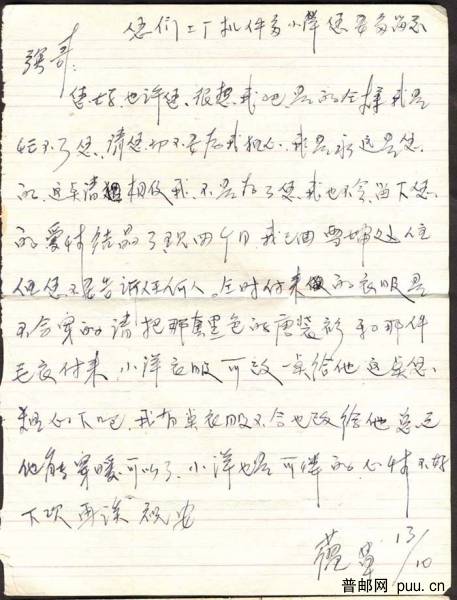 您们工厂机件多小洋您要多留心
强哥:
您好,也许您、很想我吧是的全样我是
忘不了您、请您切不要为我担心、我是永远是您、
的、这点请相信我、不是为了您、我也不会留下您、
的爱情结晶了现四个月我已由雪姊处住
但您不要告诉任何人。全时付来做的衣服是
不合穿的请把那套黑色的唐装衫和那件
毛衣付来、小洋衣服可改一点给他这点您、
心下吧、我有些衣服不合也改给他总之
他能穿暖可以了、小洋也是可怜的、心情不好
下次再谈 祝安
草 13/10
普邮网 puu.cn